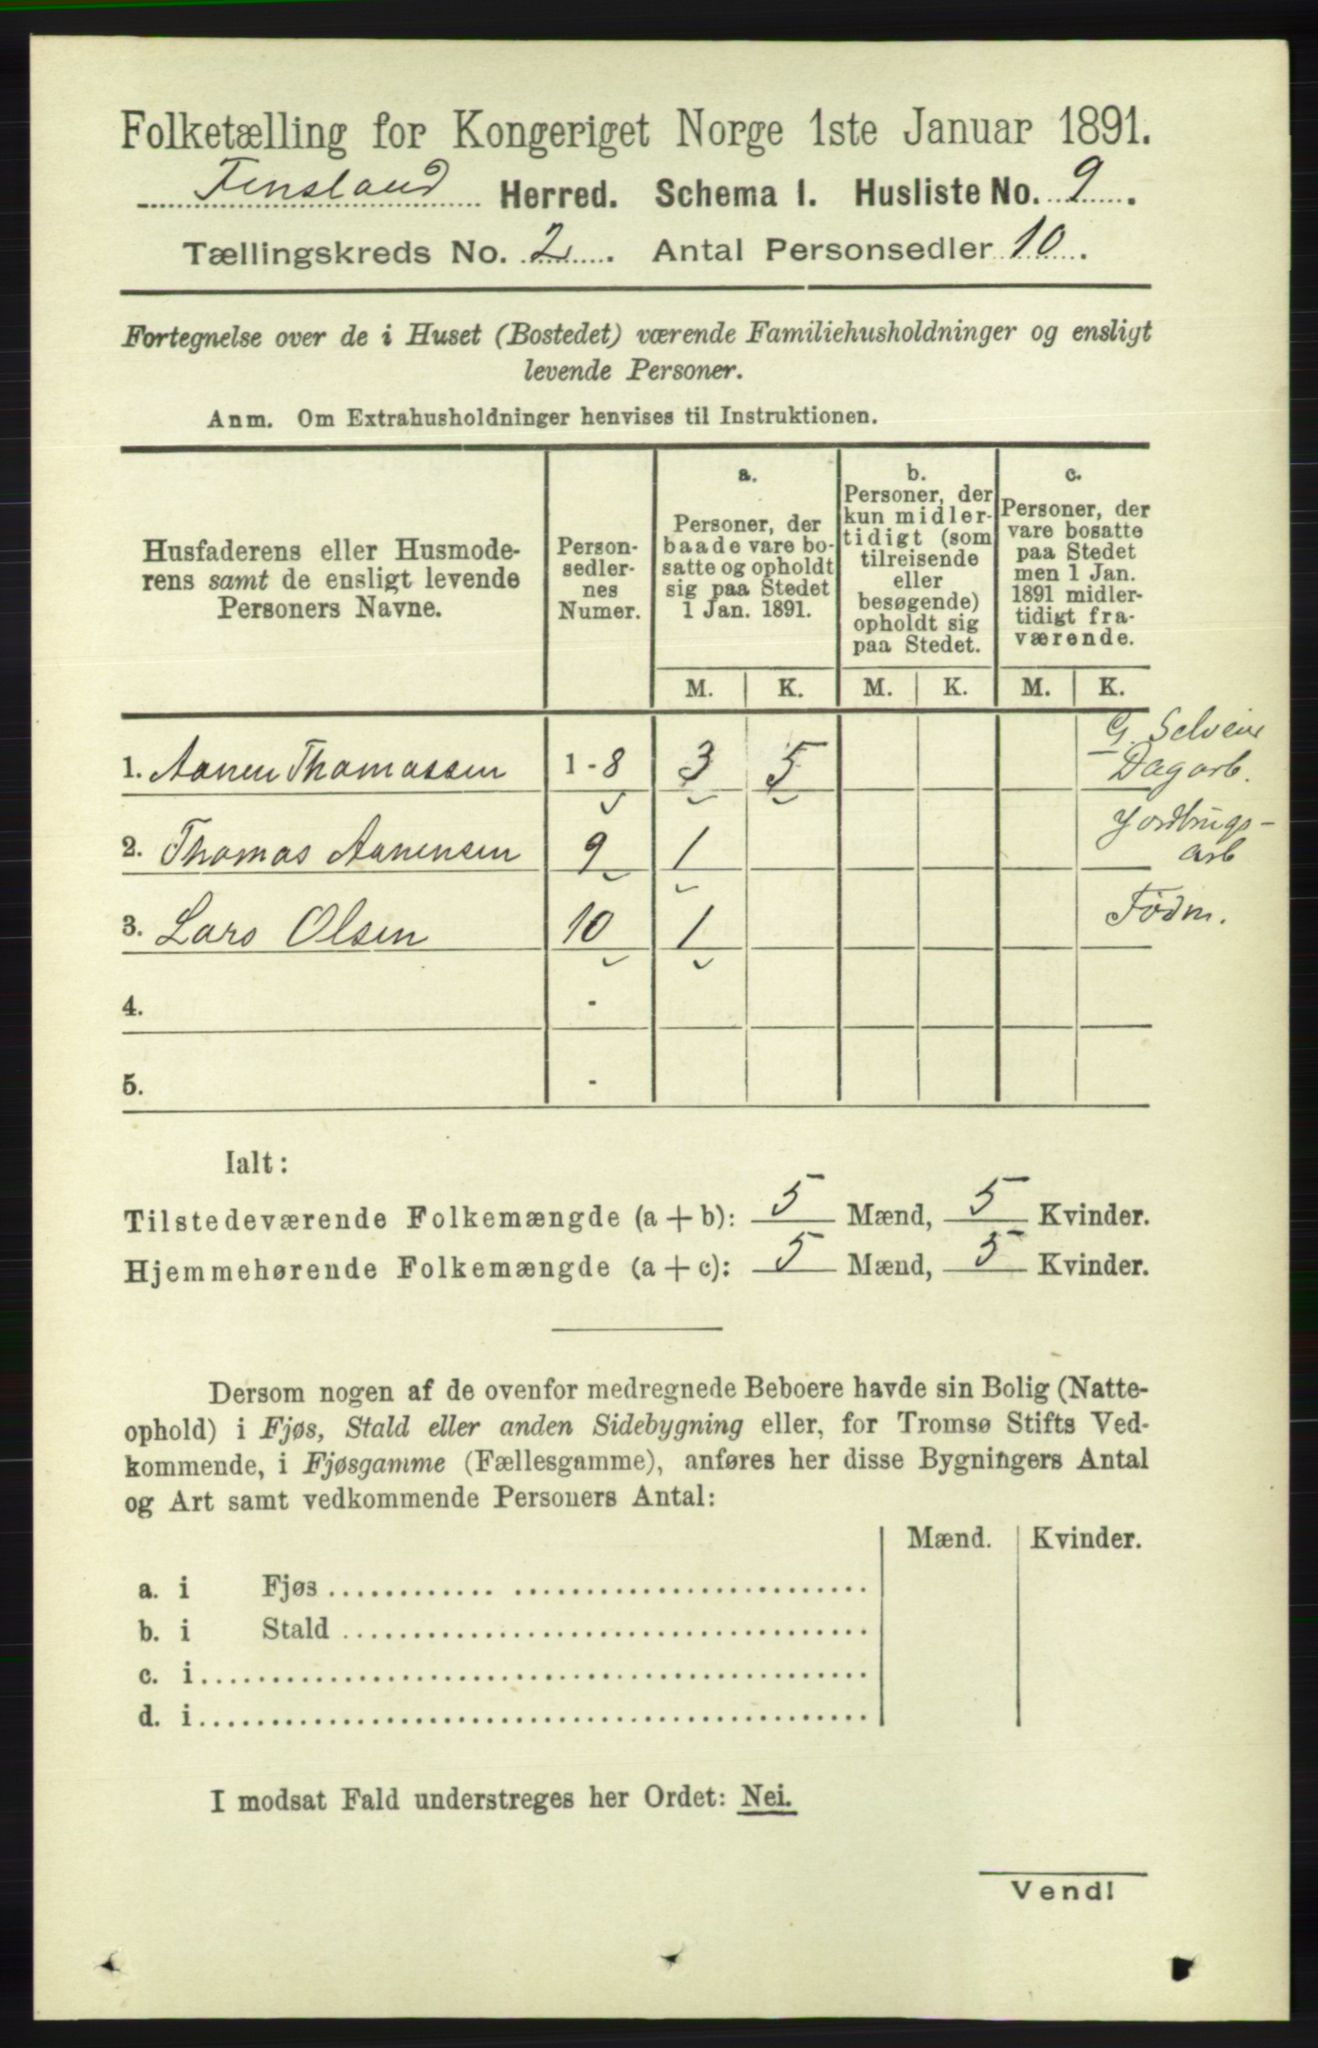 Folketælling for Kongeriget Norge 1ste Januar 1891.
Finsland Herred. Schema I. Husliste No. 9.
Tællingskreds No. 2. Antal Personsedler 10.
Fortegnelse over de i Huset (Bostedet) værende Familiehusholdninger og ensligt
levende Personer.
Anm. Om Extrahusholdninger henvises til Instruktionen.
Husfaderens eller Husmode-
rens samt de ensligt levende
Personers Navne.
Person-
sedler-
nes
Numer.
a.
Personer, der
baade vare bo-
satte og opholdt
sig paa Stedet
1 Jan. 1891.
b.
Personer, der
kun midler-
tidigt (som
tilreisende
eller
besøgende)
opholdt sig
paa Stedet.
c.
Personer, der
vare bosatte
paa Stedet
men 1 Jan.
1891 midler-
tidigt fra-
værende.
M. K. M. K. M. K.
1. Aanen Thomassen 1-8 3 5 G. Selveier
Dagarb.
2. Thomas Aanensen 9 1 Jordbrugs-
arb
3. Lars Olsen 10 1 Födm.
4. -
5. -
Ialt:
Tilstedeværende Folkemængde (a + b): 5 Mænd, 5 Kvinder.
Hjemmehørende Folkemængde (a + c): 5 Mænd, 5 Kvinder.
Dersom nogen af de ovenfor medregnede Beboere havde sin Bolig (Natte-
ophold) i Fjøs, Stald eller anden Sidebygning eller, for Tromsø Stifts Ved-
kommende, i Fjøsgamme (Fællesgamme), anføres her disse Bygningers Antal
og Art samt vedkommende Personers Antal:
Mænd. Kvinder.
a. i Fjøs
b. i Stald
c. i
d. i
I modsat Fald understreges her Ordet: Nei.
Vend!